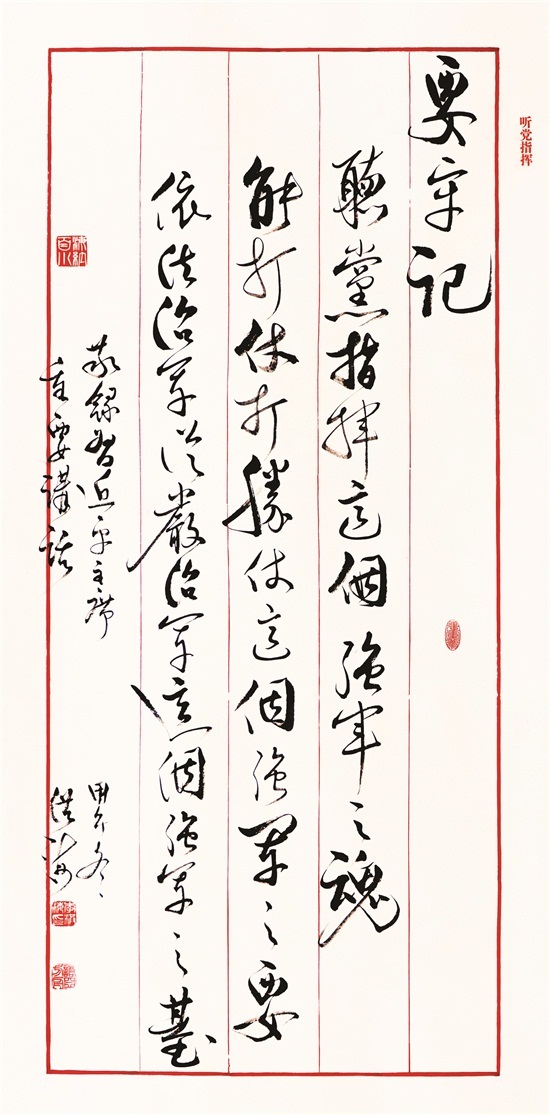 听党指挥
要牢记
聽黨指揮這個強軍之魂
能打仗打勝仗這個強軍之要
依法治軍從嚴治軍這個強軍之基
敬錄習近平主席
重要講話
甲午冬